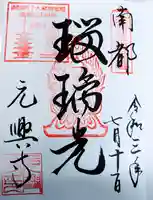 南都
令和三年
七月十日
瑠璃光
元興寺